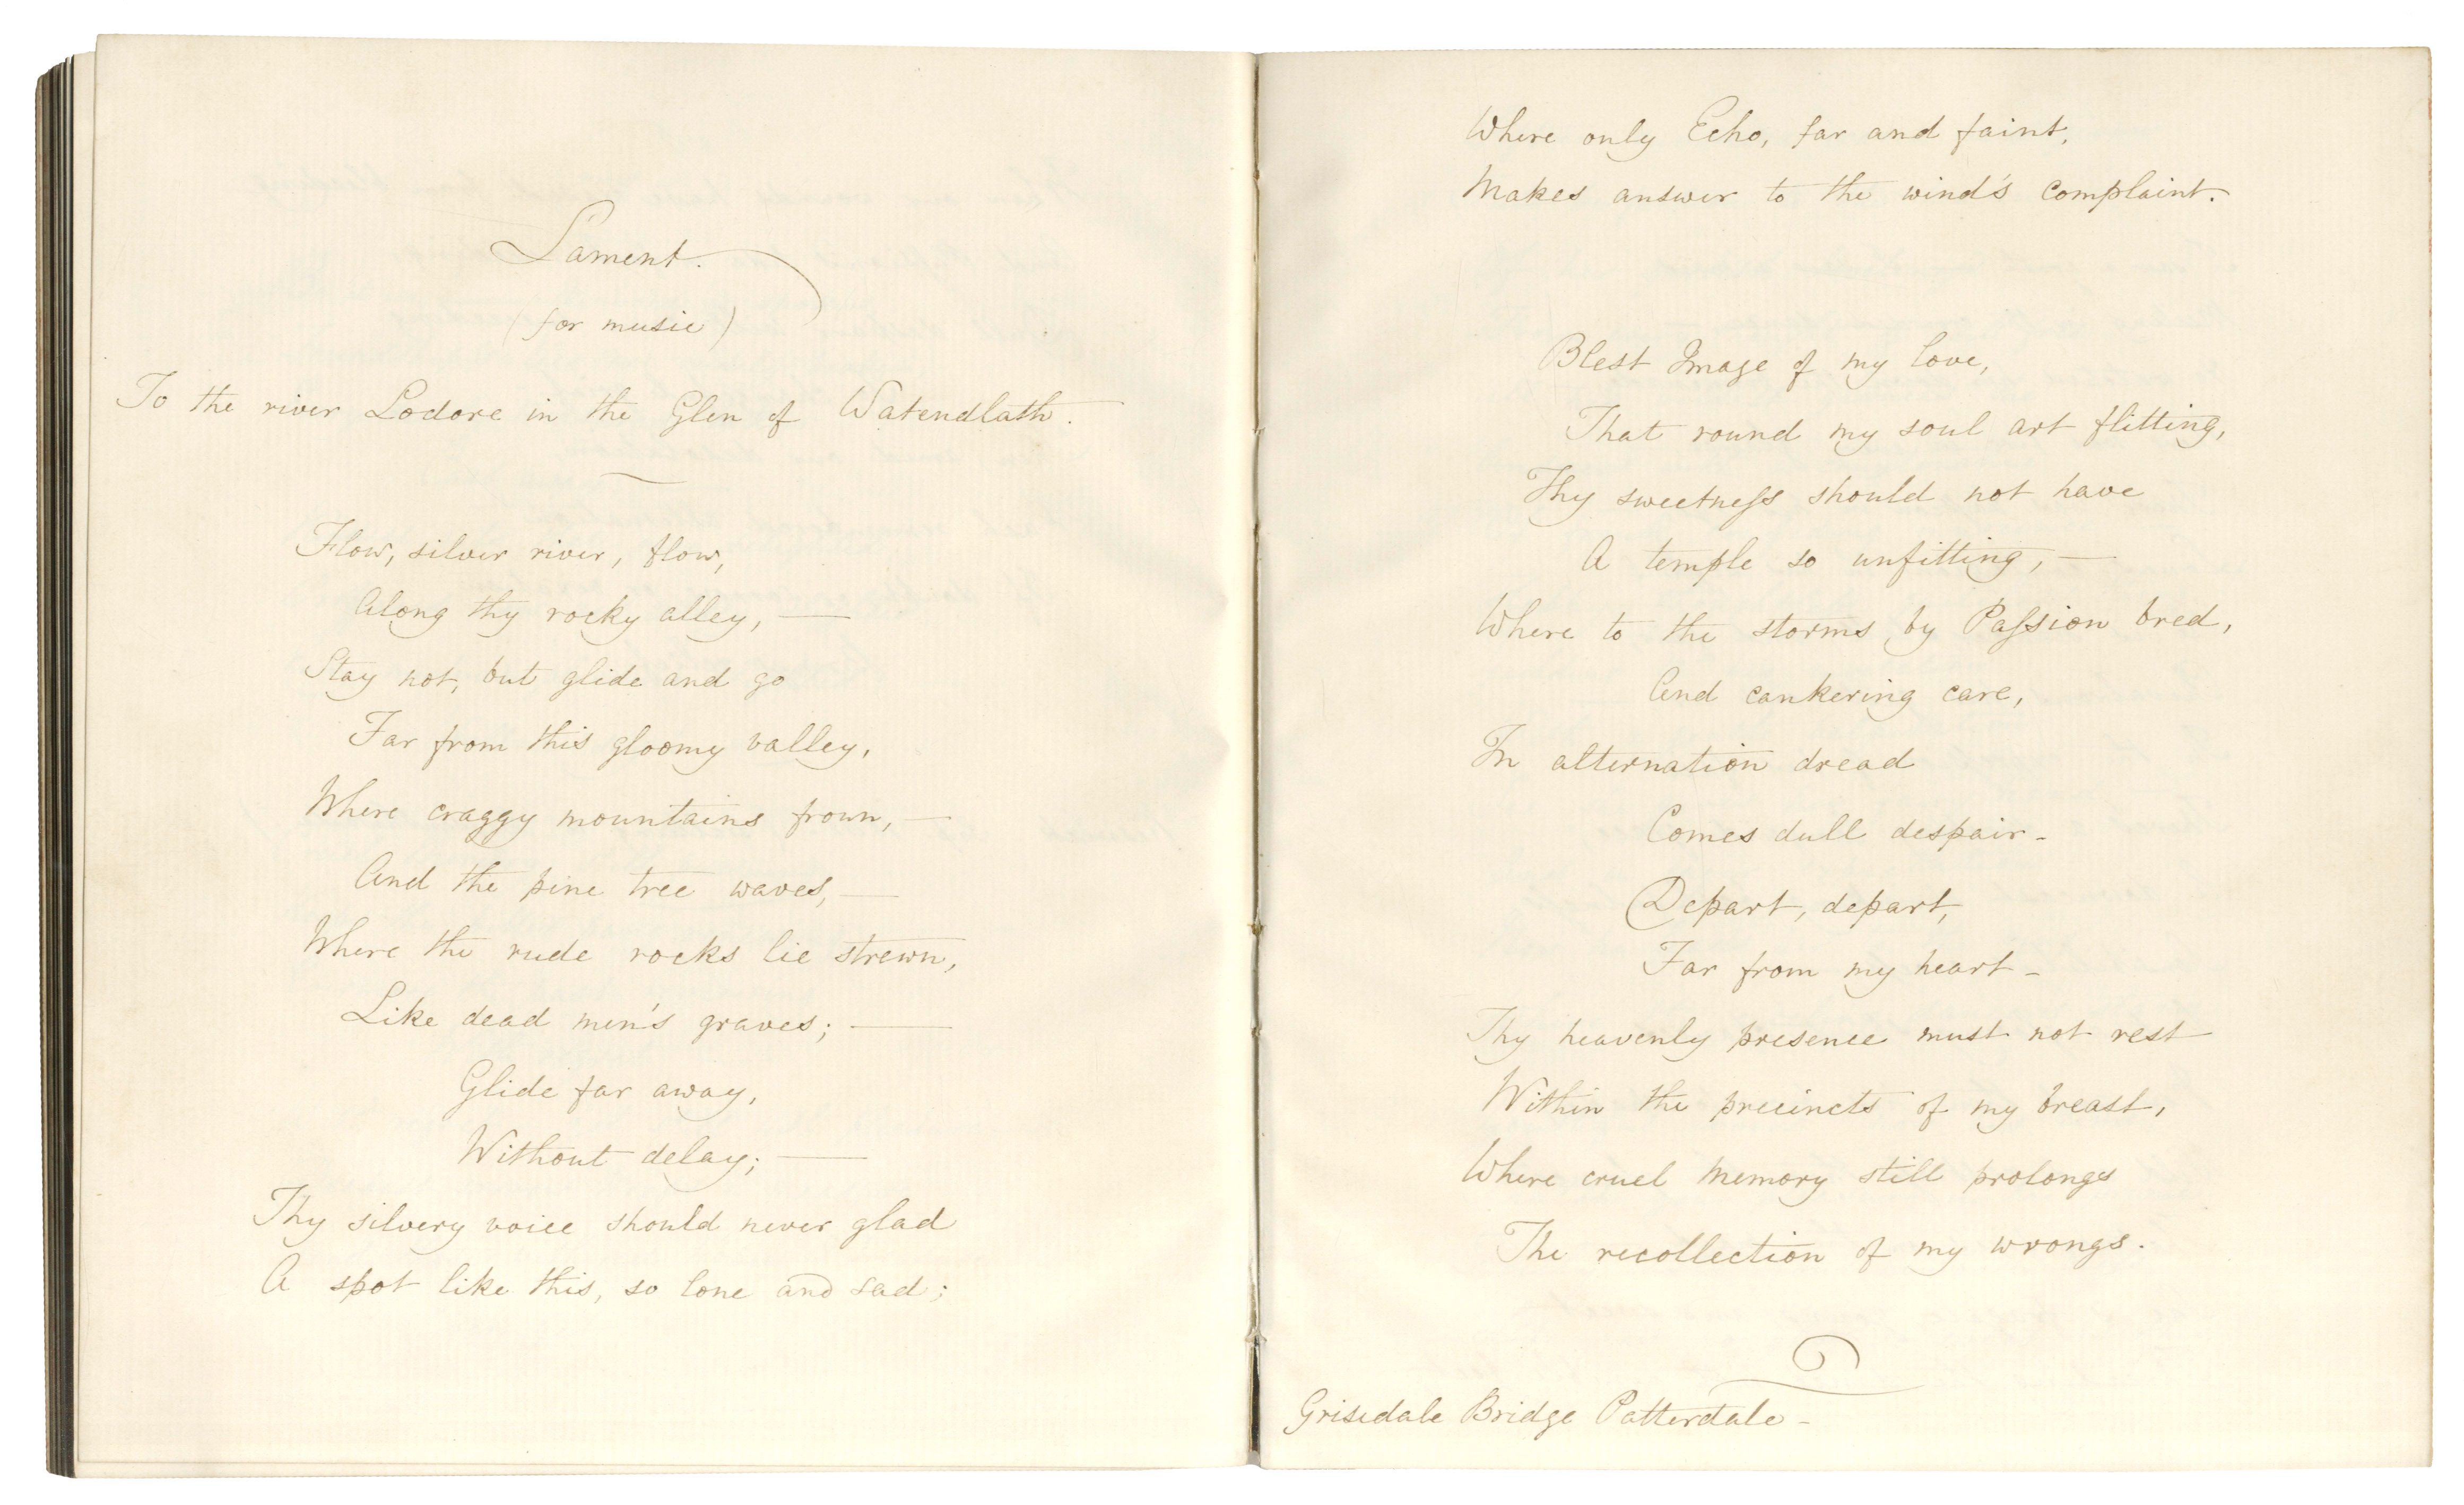 Lament.
(for music)
To the river Lodore in the Glen of Watendlath.
Flow, silver river, flow,
Along thy rocky alley, —
Stay not, but glide and go
Far from this gloomy valley,
Where craggy mountains frown, —
And the pine tree waves, —
Where the rude rocks lie strewn,
Like dead men's graves; —
Glide far away,
Without delay; —
Thy silvery voice should never glad
A spot like this, so lone and sad;
Where only Echo, far and faint,
Makes answer to the wind's complaint.
Blest Image of my love,
That round my soul art flitting,
Thy sweetneſs should not have
A temple so unfitting, —
Where to the storms by Paſsion bred,
And cankering care,
In alternation dread
Comes dull despair -
Depart, depart,
Far from my heart -
Thy heavenly presence must not rest
Within the precincts of my breast,
Where cruel Memory still prolongs
The recollection of my wrongs.
Grisedale Bridge Patterdale -